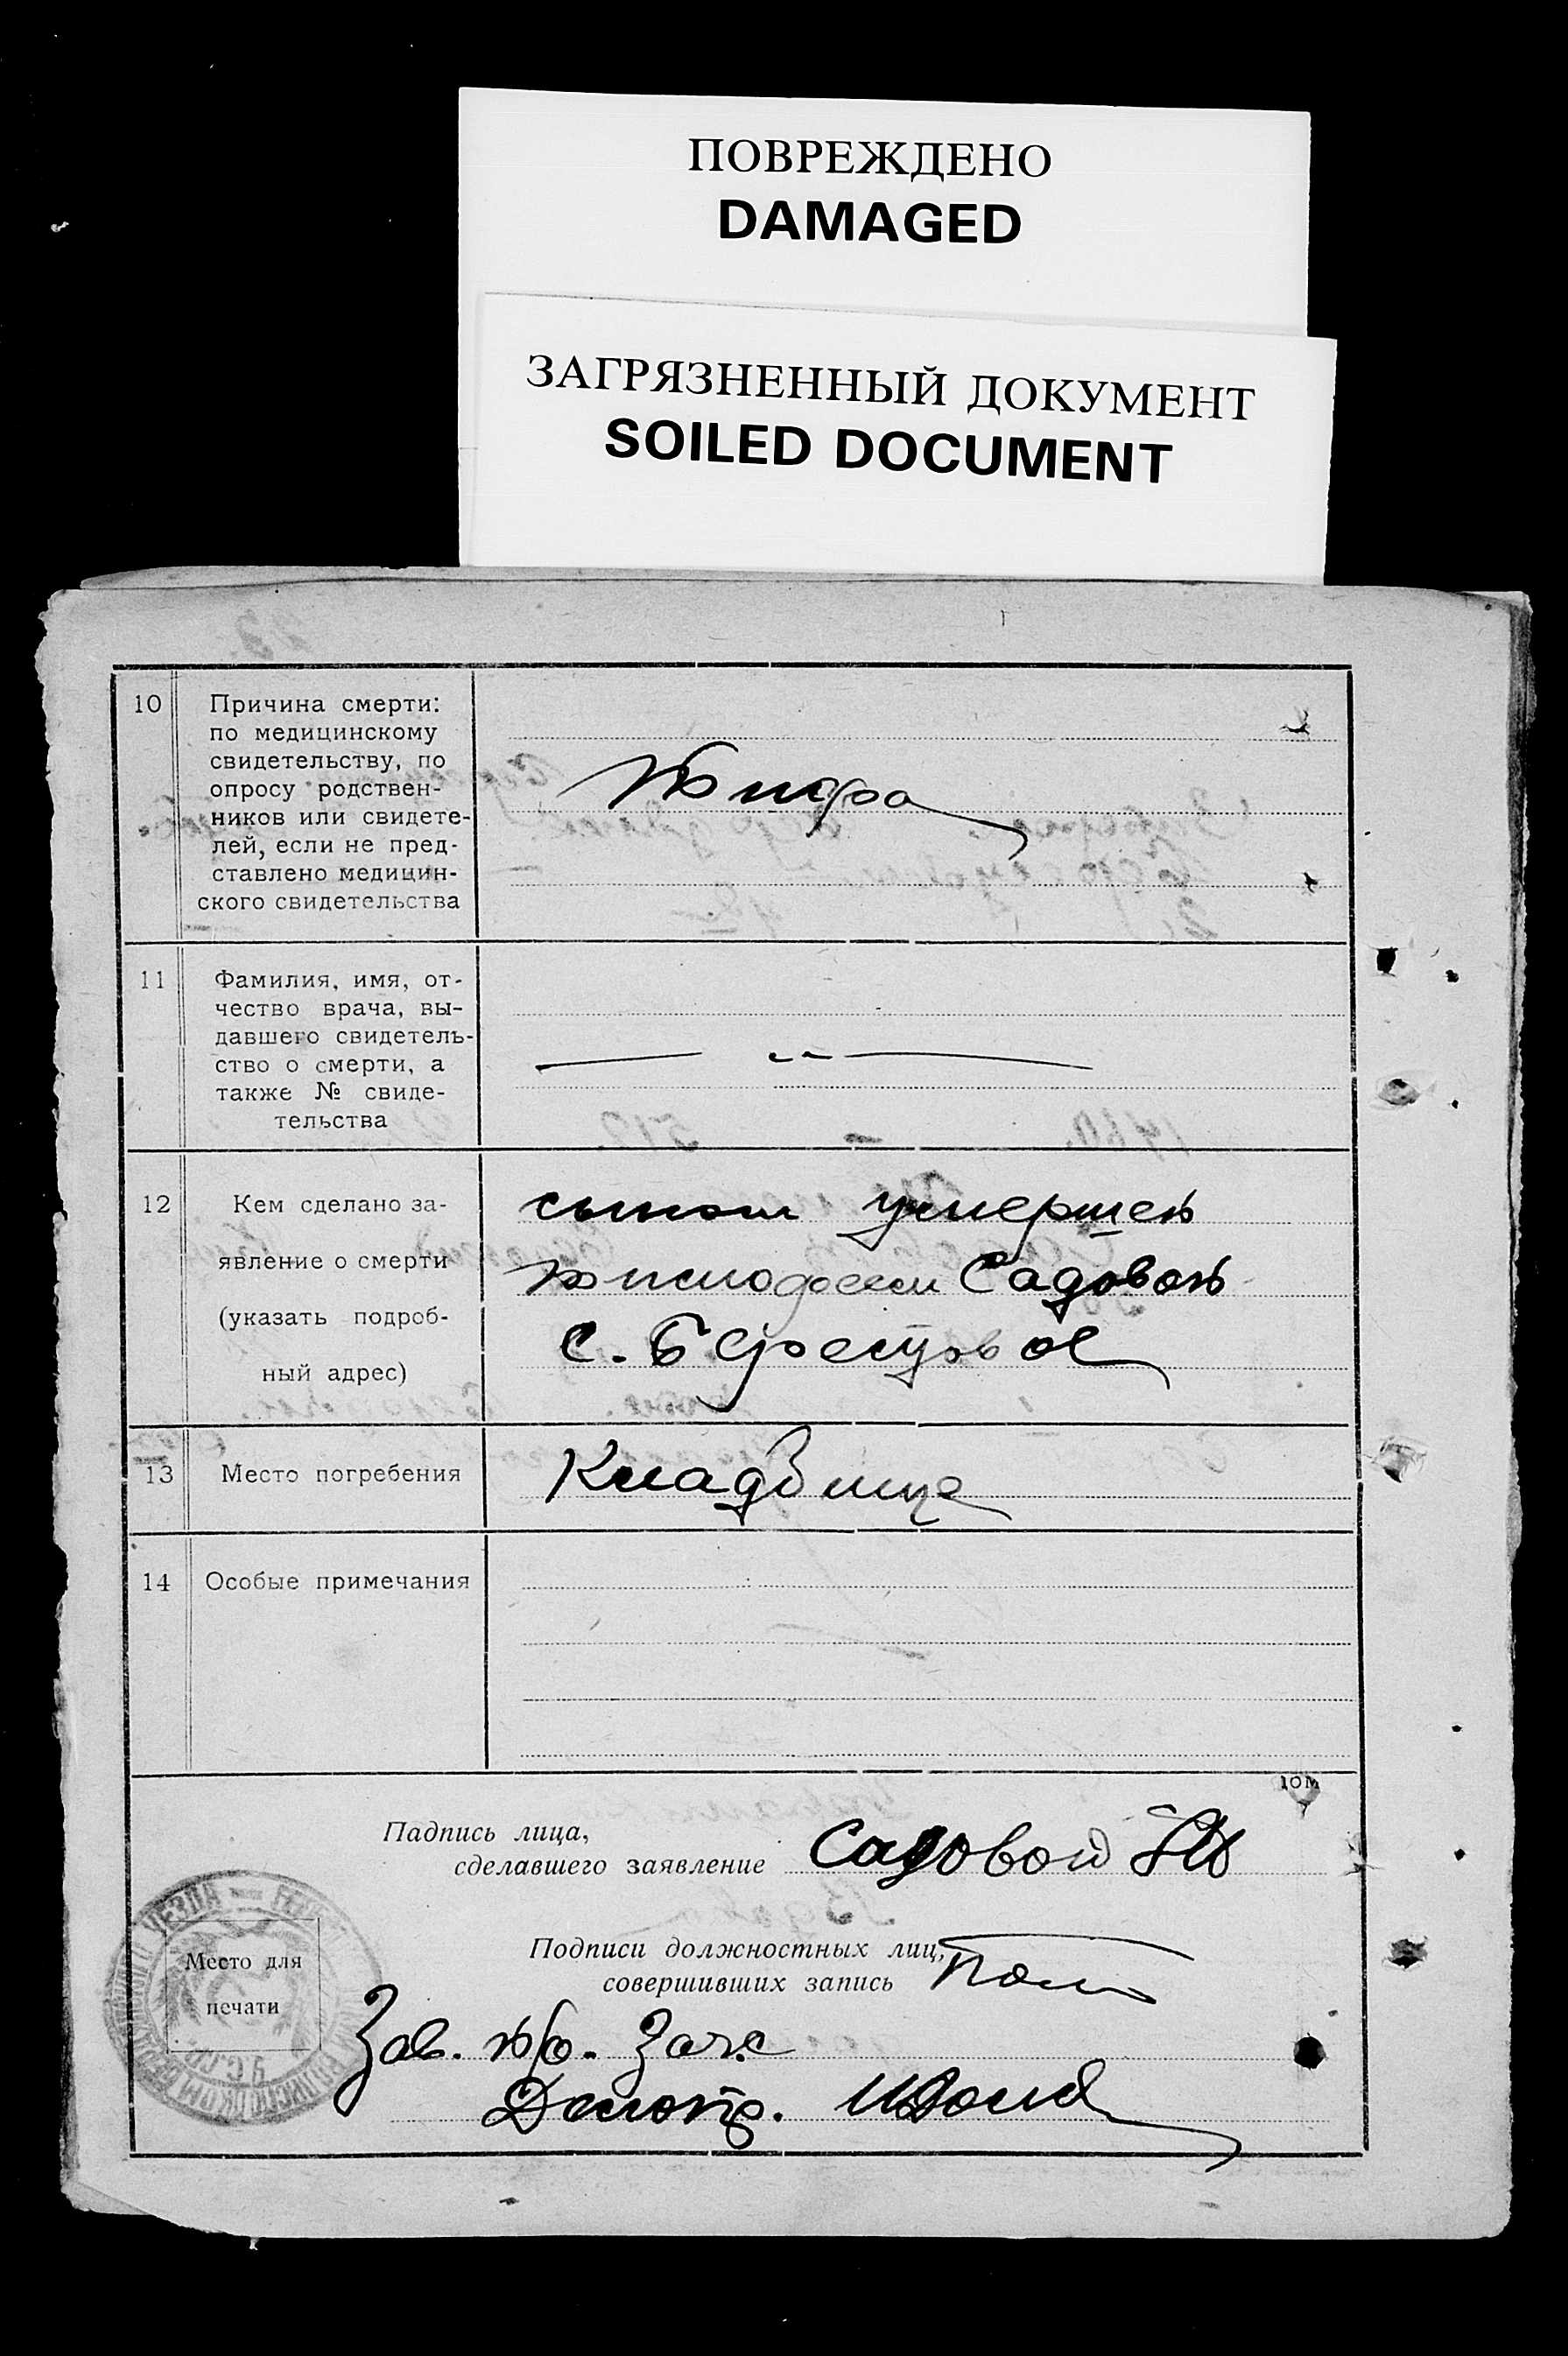 ПОВРЕЖДЕНО
DAMAGED
ЗАГРЯЗНЕННЫЙ ДОКУМЕНТ
SOILED DOCUMENT
10
Причина смерти:
по медицинскому
свидетельству, по
опросу родствен-
ников или свидете-
лей, если не пред-
ставлено медицин-
ского свидетельства
11
Фамилия, имя, от-
чество врача, вы-
давшего свидетель-
ство о смерти, а
также № свиде-
тельства
12
Кем сделано за-
явление о смерти
(указать подроб-
ный адрес)
сыном умершей
Садовой
с. Берестовое
13
Место погребения
Кладбище
14
Особые примечания
10м
Падпись лица,
сделавшего заявление
Садовой
Подписи должностных лиц,
совершивших запись
Место для
печати
Зав. п/о. Загс